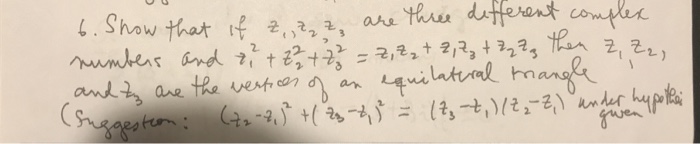 6. Show that if z₁, z₂, z₃ are three different complex
numbers and z₁² + z₂² + z₃² = z₁z₂ + z₁z₃ + z₂z₃ then z₁, z₂,
and z₃ are the vertices of an equilateral triangle
(Suggestion: (z₂-z₁)² + (z₃-z₁)² = (z₃-z₁)(z₂-z₁) under hypothesis
given